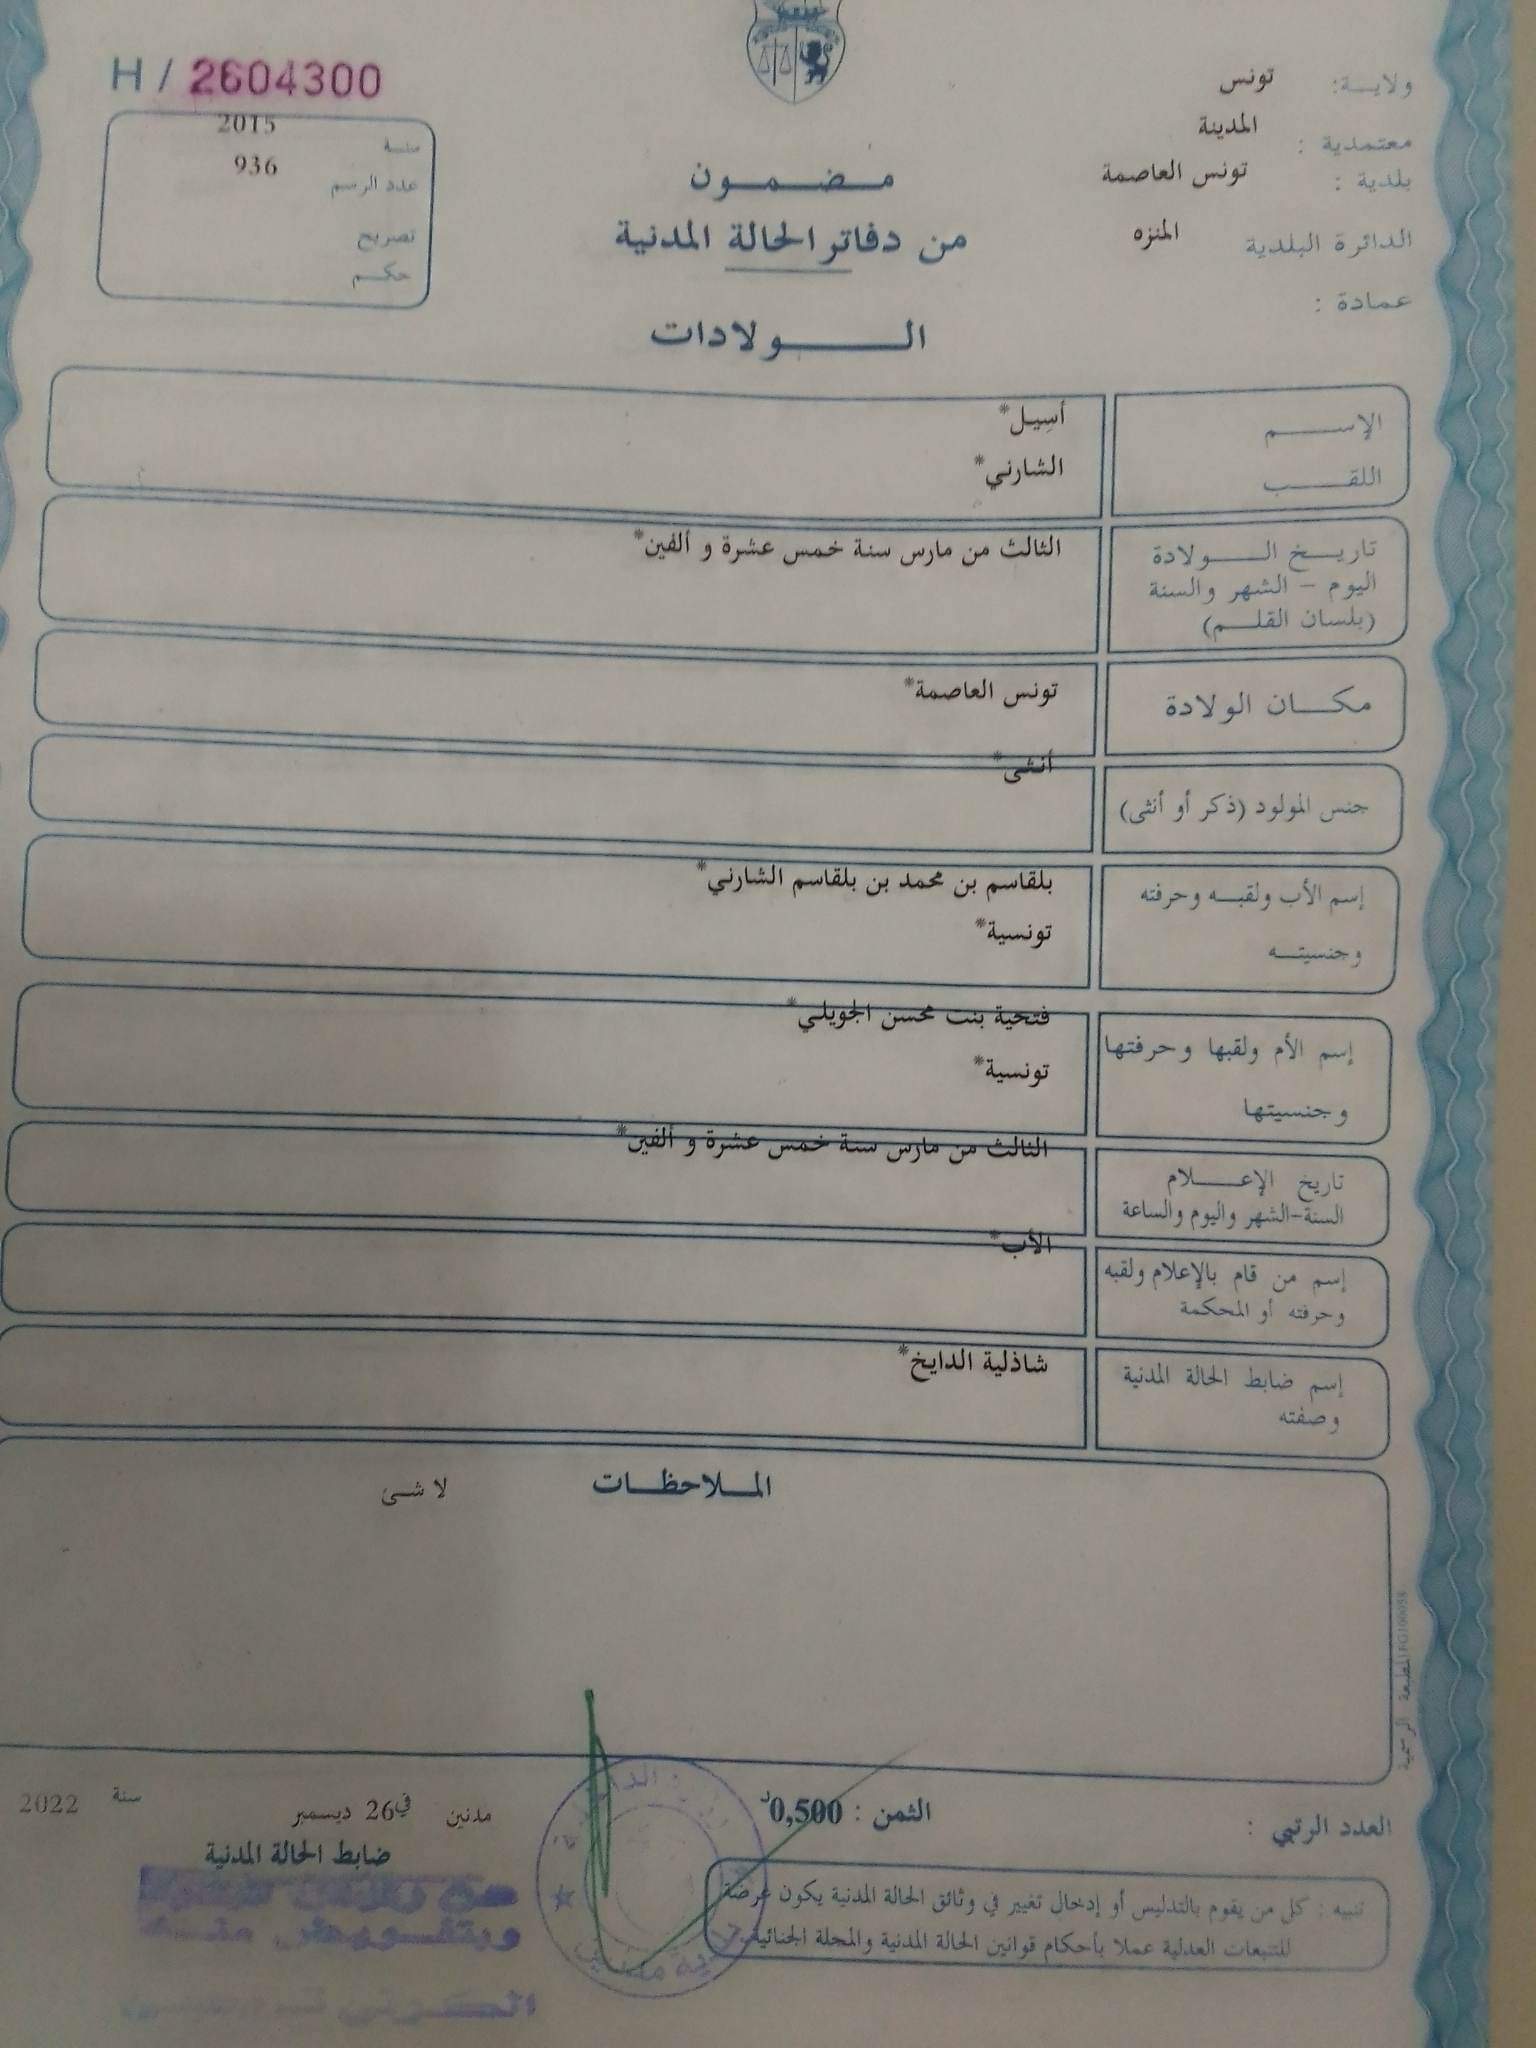 H / 2604300
ولاية: تونس
معتمدية : المدينة
بلدية : تونس العاصمة
الدائرة البلدية المنزه
عمادة :
سنة 2015
عدد الرسم 936
تصريح
حكم
مضمون
من دفاتر الحالة المدنية
الولادات
الإسم أسِيل*
اللقب الشارني*
تاريخ الولادة الثالث من مارس سنة خمس عشرة و ألفين*
اليوم - الشهر والسنة
(بلسان القلم)
مكان الولادة تونس العاصمة*
جنس المولود (ذكر أو أنثى) أنثى*
إسم الأب ولقبه وحرفته بلقاسم بن محمد بن بلقاسم الشارني*
وجنسيته تونسية*
إسم الأم ولقبها وحرفتها فتحية بنت محسن الجويلي*
وجنسيتها تونسية*
تاريخ الإعلام الثالث من مارس سنة خمس عشرة و ألفين*
السنة-الشهر واليوم والساعة
إسم من قام بالإعلام ولقبه الأب*
وحرفته أو المحكمة
إسم ضابط الحالة المدنية شاذلية الدايخ*
وصفته
الملاحظات لا شئ
المطبعة الرسمية FG100058
العدد الرتبي :
الثمن : 0,500د
مدنين في 26 ديسمبر سنة 2022
ضابط الحالة المدنية
تنبيه : كل من يقوم بالتدليس أو إدخال تغيير في وثائق الحالة المدنية يكون عرضة
للتتبعات العدلية عملا بأحكام قوانين الحالة المدنية والمجلة الجنائية